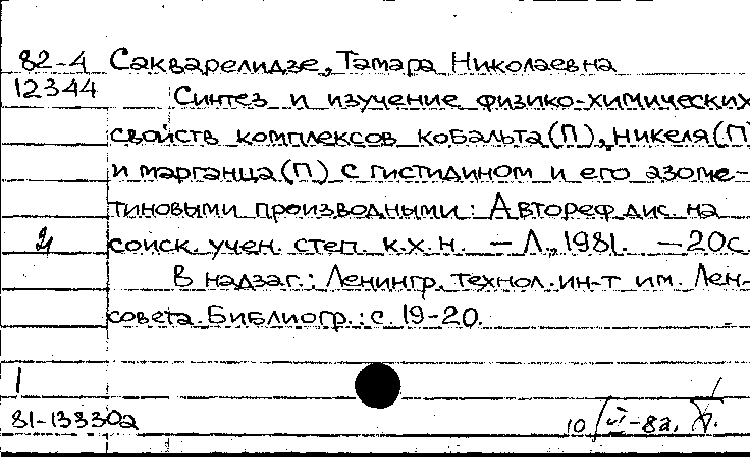 82-4 Сакварелидзе, Тамара Николаевна
12344 Синтез и изучение физико-химических
свойств комплексов кобальта(П), никеля(П)
и марганца(П) с гистидином и его азоме-
тиновыми производными: Автореф дис. на
соиск. учен. степ. к.х.н. — Л., 1981. — 20с
В надзаг.: Ленингр. технол. ин-т им. Лен-
совета. Библиогр.: с. 19-20.
1
81-13830а